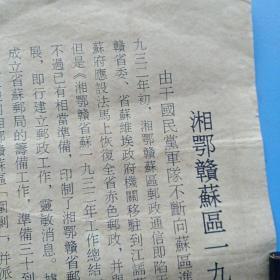 湘鄂贛蘇區一九
由于國民黨軍隊不斷向蘇區進
九三二年初，湘鄂贛蘇區郵政通信即陷
贛省委、省蘇維埃政府機關移駐到江語
蘇府應設法馬上恢復全省赤色郵政，并與
但是《湘鄂贛省蘇一九三二年工作總結
不過已有相當準備，印制了湘鄂贛省郵
展，即行建立郵政工作，靈敏消息。據
成立省蘇郵局的籌備工作，準備二十列